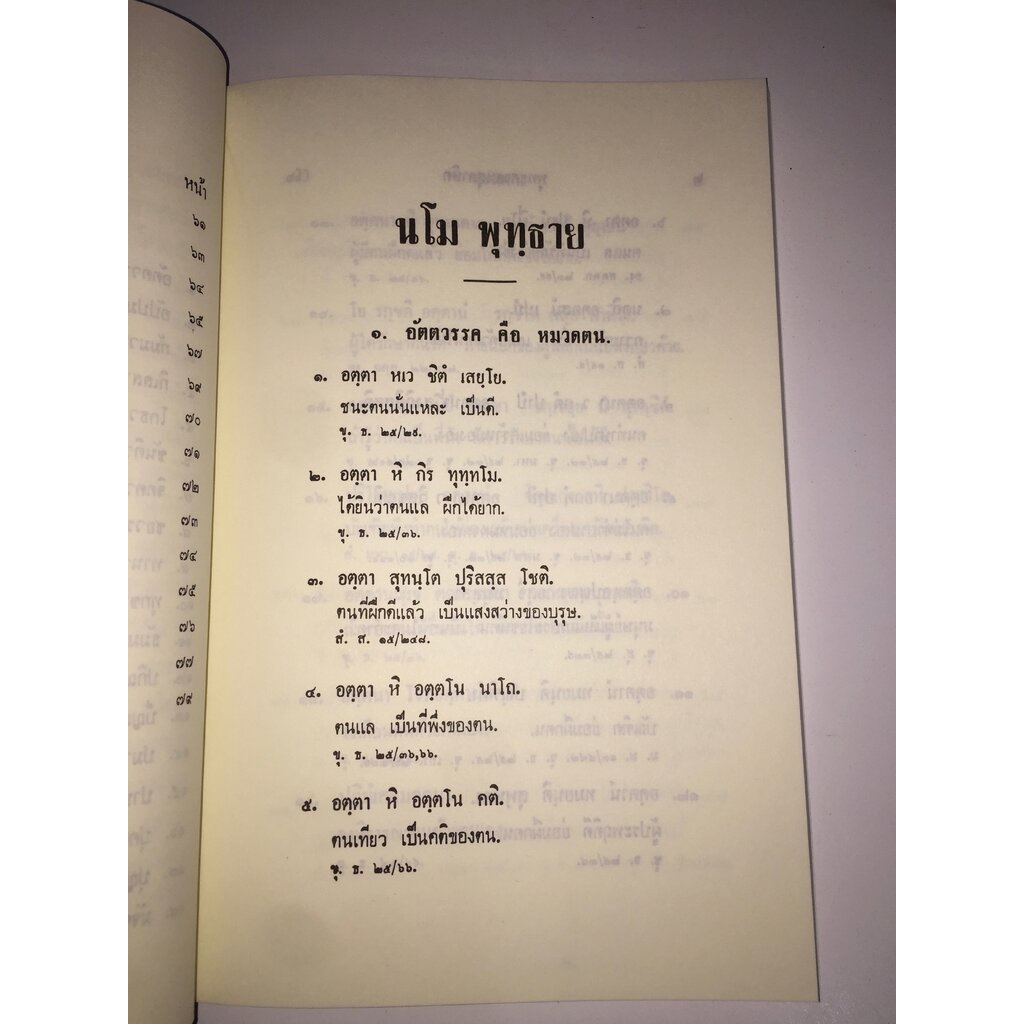 หน้า
๖๑
๖๓
๖๔
๖๕
๖๗
๖๙
๗๐
๗๑
๗๒
๗๓
๗๔
๗๕
๗๖
๗๗
๗๙
นโม พุทฺธาย
๑. อัตตวรรค คือ หมวดตน.
๑. อตฺตา หเว ชิตํ เสยฺโย.
ชนะตนนั่นแหละ เป็นดี.
ขุ. ธ. ๒๕/๒๙.
๒. อตฺตา หิ กิร ทุทฺทโม.
ได้ยินว่าตนแล ฝึกได้ยาก.
ขุ. ธ. ๒๕/๓๖.
๓. อตฺตา สุทนฺโต ปุริสสฺส โชติ.
ตนที่ฝึกดีแล้ว เป็นแสงสว่างของบุรุษ.
สํ. ส. ๑๕/๒๔๘.
๔. อตฺตา หิ อตฺตโน นาโถ.
ตนแล เป็นที่พึ่งของตน.
ขุ. ธ. ๒๕/๓๖,๖๖.
๕. อตฺตา หิ อตฺตโน คติ.
ตนเทียว เป็นคติของตน.
ขุ. ธ. ๒๕/๖๖.